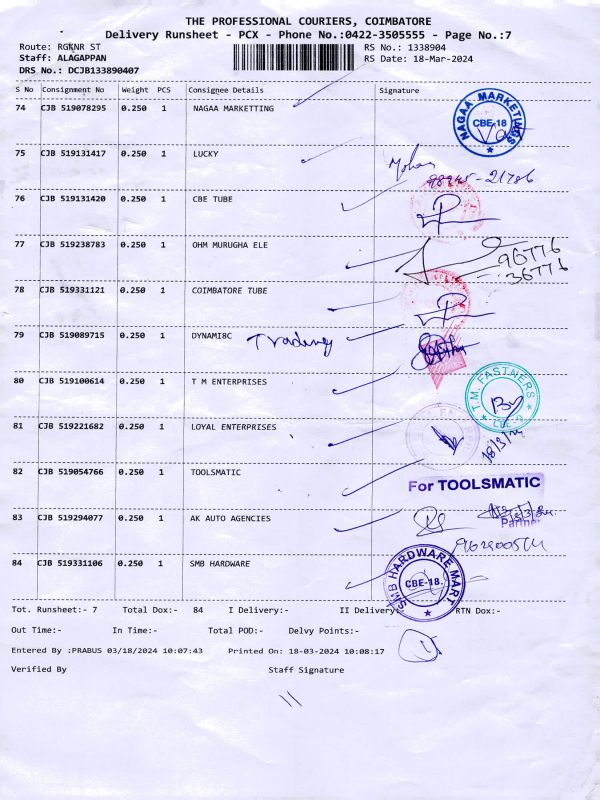 THE PROFESSIONAL COURIERS, COIMBATORE
Delivery Runsheet - PCX - Phone No.:0422-3505555 - Page No.:7
Route: RGKNR ST RS No.: 1338904
Staff: ALAGAPPAN RS Date: 18-Mar-2024
DRS No.: DCJB133890407
S No Consignment No Weight PCS Consignee Details Signature
74 CJB 519078295 0.250 1 NAGAA MARKETTING
NAGAA MARKETINGS CBE-18
75 CJB 519131417 0.250 1 LUCKY Mohan
98945-21786
76 CJB 519131420 0.250 1 CBE TUBE
77 CJB 519238783 0.250 1 OHM MURUGHA ELE 96776
36776
78 CJB 519331121 0.250 1 COIMBATORE TUBE
79 CJB 519089715 0.250 1 DYNAMI8C Trading
80 CJB 519100614 0.250 1 T M ENTERPRISES
T.M. FASTNERS
81 CJB 519221682 0.250 1 LOYAL ENTERPRISES
18/3/24
82 CJB 519054766 0.250 1 TOOLSMATIC For TOOLSMATIC
83 CJB 519294077 0.250 1 AK AUTO AGENCIES
Partner
84 CJB 519331106 0.250 1 SMB HARDWARE
SMB HARDWARE MART CBE-18.
Tot. Runsheet:- 7 Total Dox:- 84 I Delivery:- II Delivery:- RTN Dox:-
Out Time:- In Time:- Total POD:- Delvy Points:-
Entered By :PRABUS 03/18/2024 10:07:43 Printed On: 18-03-2024 10:08:17
Verified By Staff Signature